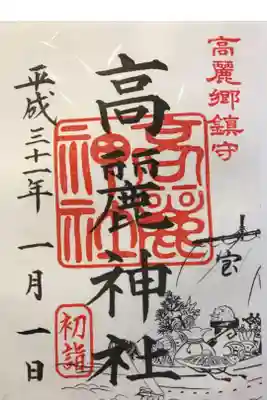 高麗郷鎮守
高麗神社
高麗
神社
平成三十一年 一月 一日
初詣
宝